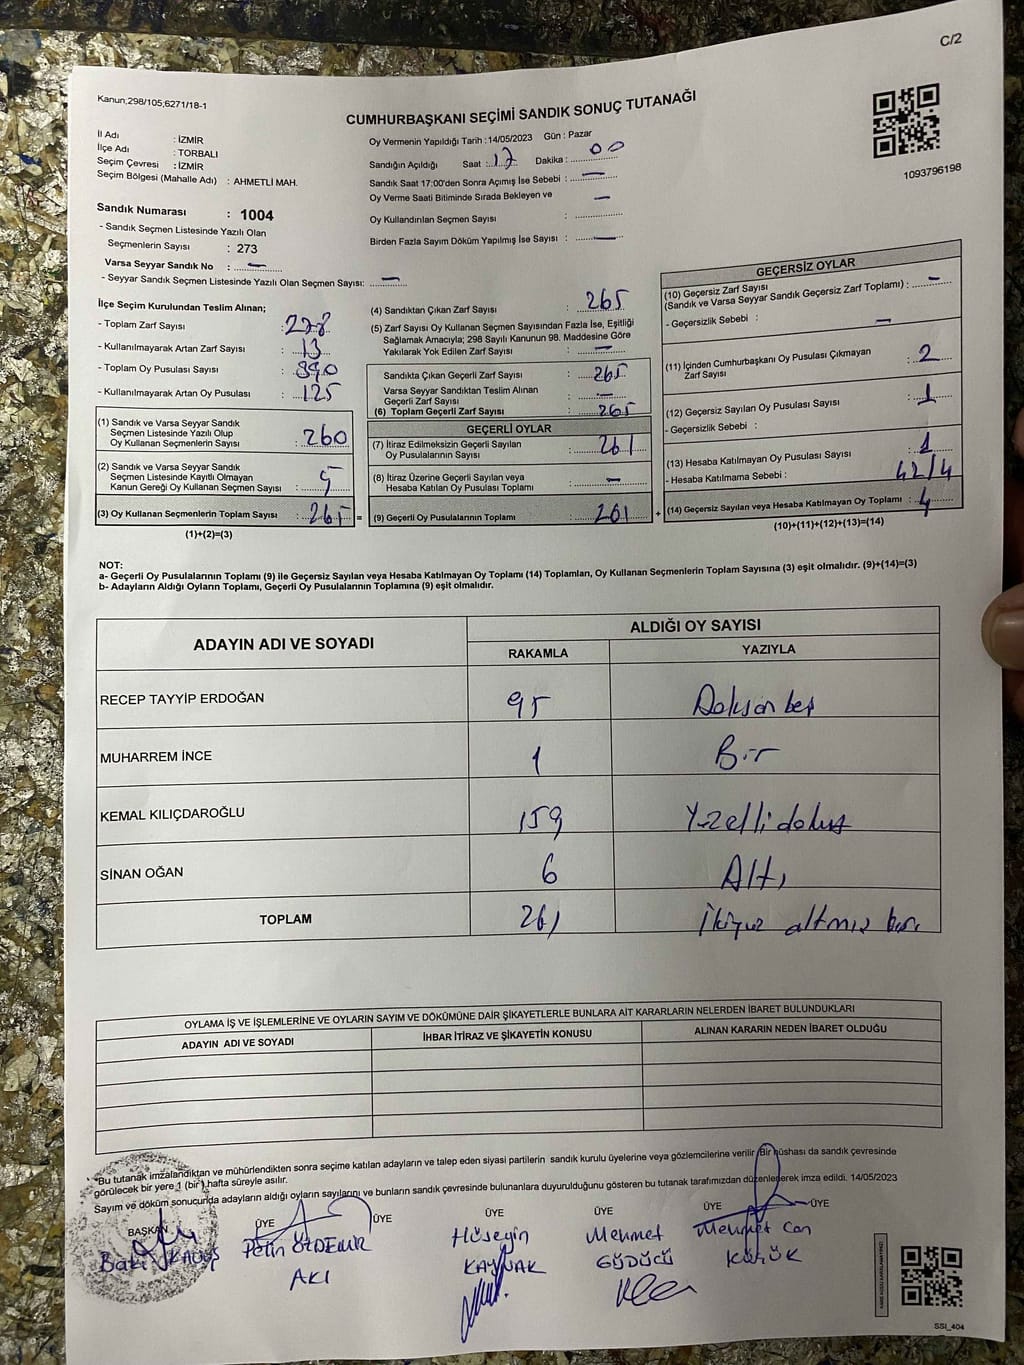 C/2
Kanun;298/105,6271/18-1
CUMHURBAŞKANI SEÇİMİ SANDIK SONUÇ TUTANAĞI
1093796198
İl Adı : İZMİR
İlçe Adı : TORBALI
Seçim Çevresi : İZMİR
Seçim Bölgesi (Mahalle Adı) : AHMETLİ MAH.
Sandık Numarası : 1004
- Sandık Seçmen Listesinde Yazılı Olan
Seçmenlerin Sayısı : 273
Varsa Seyyar Sandık No : —
- Seyyar Sandık Seçmen Listesinde Yazılı Olan Seçmen Sayısı: —
Oy Vermenin Yapıldığı Tarih : 14/05/2023 Gün : Pazar
Sandığın Açıldığı Saat : 17 Dakika : 00
Sandık Saat 17:00'den Sonra Açımış İse Sebebi : —
Oy Verme Saati Bitiminde Sırada Bekleyen ve —
Oy Kullandırılan Seçmen Sayısı :
Birden Fazla Sayım Döküm Yapılmış İse Sayısı : —
İlçe Seçim Kurulundan Teslim Alınan;
- Toplam Zarf Sayısı : 278
- Kullanılmayarak Artan Zarf Sayısı : 13
- Toplam Oy Pusulası Sayısı : 390
- Kullanılmayarak Artan Oy Pusulası : 125
(1) Sandık ve Varsa Seyyar Sandık
Seçmen Listesinde Yazılı Olup
Oy Kullanan Seçmenlerin Sayısı : 260
(2) Sandık ve Varsa Seyyar Sandık
Seçmen Listesinde Kayıtlı Olmayan
Kanun Gereği Oy Kullanan Seçmen Sayısı : 5
(3) Oy Kullanan Seçmenlerin Toplam Sayısı : 265 =
(1)+(2)=(3)
(4) Sandıktan Çıkan Zarf Sayısı : 265
(5) Zarf Sayısı Oy Kullanan Seçmen Sayısından Fazla İse, Eşitliği
Sağlamak Amacıyla; 298 Sayılı Kanunun 98. Maddesine Göre
Yakılarak Yok Edilen Zarf Sayısı : —
Sandıkta Çıkan Geçerli Zarf Sayısı : 265
Varsa Seyyar Sandıktan Teslim Alınan
Geçerli Zarf Sayısı : —
(6) Toplam Geçerli Zarf Sayısı : 265
GEÇERLİ OYLAR
(7) İtiraz Edilmeksizin Geçerli Sayılan
Oy Pusulalarının Sayısı : 261
(8) İtiraz Üzerine Geçerli Sayılan veya
Hesaba Katılan Oy Pusulası Toplamı : —
(9) Geçerli Oy Pusulalarının Toplamı : 261 +
GEÇERSİZ OYLAR
(10) Geçersiz Zarf Sayısı
(Sandık ve Varsa Seyyar Sandık Geçersiz Zarf Toplamı) : —
- Geçersizlik Sebebi : —
(11) İçinden Cumhurbaşkanı Oy Pusulası Çıkmayan
Zarf Sayısı : 2
(12) Geçersiz Sayılan Oy Pusulası Sayısı : 1
- Geçersizlik Sebebi :
(13) Hesaba Katılmayan Oy Pusulası Sayısı : 1
- Hesaba Katılmama Sebebi : 42/4
(14) Geçersiz Sayılan veya Hesaba Katılmayan Oy Toplamı : 4
(10)+(11)+(12)+(13)=(14)
NOT:
a- Geçerli Oy Pusulalarının Toplamı (9) ile Geçersiz Sayılan veya Hesaba Katılmayan Oy Toplamı (14) Toplamları, Oy Kullanan Seçmenlerin Toplam Sayısına (3) eşit olmalıdır. (9)+(14)=(3)
b- Adayların Aldığı Oyların Toplamı, Geçerli Oy Pusulalarının Toplamına (9) eşit olmalıdır.
ADAYIN ADI VE SOYADI ALDIĞI OY SAYISI
RAKAMLA YAZIYLA
RECEP TAYYİP ERDOĞAN 95 Doksan beş
MUHARREM İNCE 1 Bir
KEMAL KILIÇDAROĞLU 159 Yüzelli dokuz
SİNAN OĞAN 6 Altı
TOPLAM 261 İkiyüz altmış bir
OYLAMA İŞ VE İŞLEMLERİNE VE OYLARIN SAYIM VE DÖKÜMÜNE DAİR ŞİKAYETLERLE BUNLARA AİT KARARLARIN NELERDEN İBARET BULUNDUKLARI
ADAYIN ADI VE SOYADI İHBAR İTİRAZ VE ŞİKAYETİN KONUSU ALINAN KARARIN NEDEN İBARET OLDUĞU
*Bu tutanak imzalandıktan ve mühürlendikten sonra seçime katılan adayların ve talep eden siyasi partilerin sandık kurulu üyelerine veya gözlemcilerine verilir. Bir nüshası da sandık çevresinde
görülecek bir yere 1 (bir) hafta süreyle asılır.
Sayım ve döküm sonucunda adayların aldığı oyların sayılarını ve bunların sandık çevresinde bulunanlara duyurulduğunu gösteren bu tutanak tarafımızdan düzenlenerek imza edildi. 14/05/2023
BAŞKAN ÜYE ÜYE ÜYE ÜYE ÜYE ÜYE
Pelin ÖZDEMİR Hüseyin Mehmet Mehmet Can
AKI KAYNAK GÜDÜCÜ
SSI_404